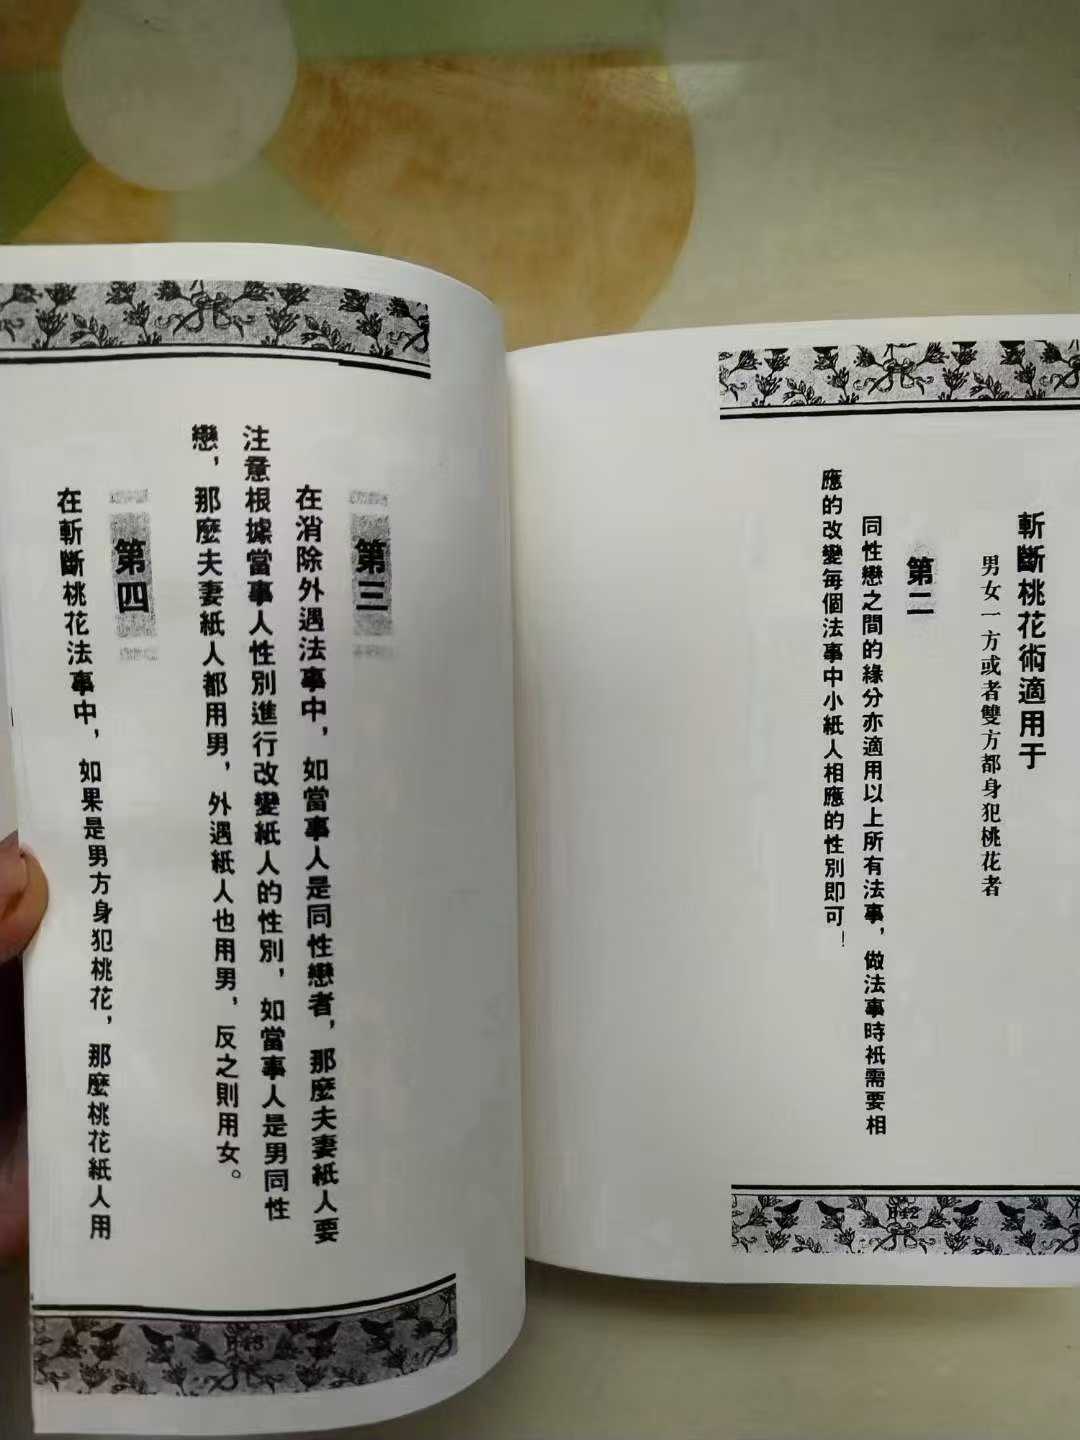 斬斷桃花術適用于
男女一方或者雙方都身犯桃花者
第二
同性戀之間的緣分亦適用以上所有法事，做法事時衹需要相
應的改變每個法事中小紙人相應的性別即可！
第三
在消除外遇法事中，如當事人是同性戀者，那麼夫妻紙人要
注意根據當事人性別進行改變紙人的性別，如當事人是男同性
戀，那麼夫妻紙人都用男，外遇紙人也用男，反之則用女。
第四
在斬斷桃花法事中，如果是男方身犯桃花，那麼桃花紙人用